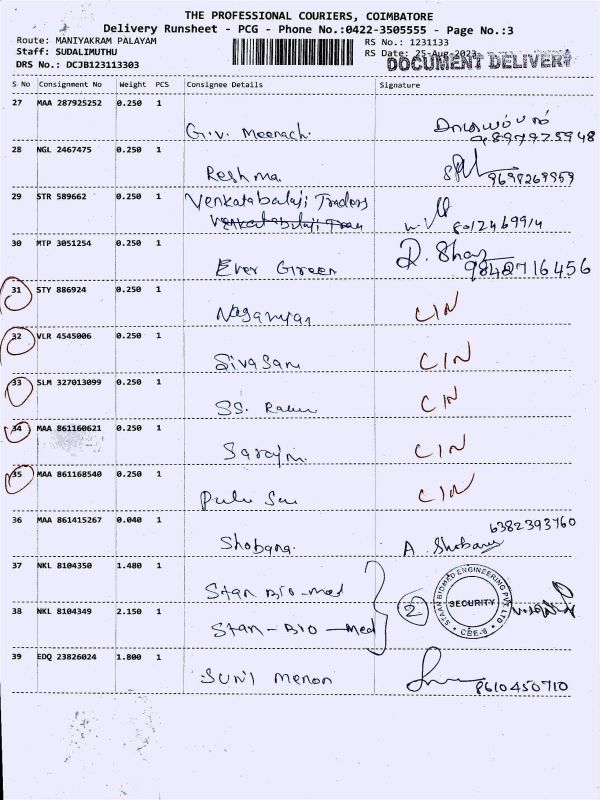 THE PROFESSIONAL COURIERS, COIMBATORE
Delivery Runsheet - PCG - Phone No.:0422-3505555 - Page No.:3
Route: MANIYAKRAM PALAYAM
RS No.: 1231133
Staff: SUDALIMUTHU
RS Date: 25-Aug-2023
DOCUMENT DELIVERY
DRS No.: DCJB123113303
S No Consignment No Weight PCS Consignee Details Signature
27 MAA 287925252 0.250 1
G.V. Meenach.
9897975948
28 NGL 2467475 0.250 1
Reshma
9698269959
29 STR 589662 0.250 1 Venkatabalaji Traders
8012469914
30 MTP 3051254 0.250 1 D. Shaz
Ever Green 9840716456
31 STY 886924 0.250 1
CIN
32 VLR 4545006 0.250 1
Sivasam CIN
33 SLM 327013099 0.250 1
SS. CIN
34 MAA 861160621 0.250 1
CIN
35 MAA 861168540 0.250 1
CIN
36 MAA 861415267 0.040 1 6382393760
Shobana. A Shobana
37 NKL 8104350 1.480 1
Stan Bio-med
STAAN BIOMED ENGINEERING PVT. LTD
SECURITY
CBE-6
2
38 NKL 8104349 2.150 1
Stan-Bio-Med
39 EDQ 23826024 1.800 1
Sunil Menon 8610450710